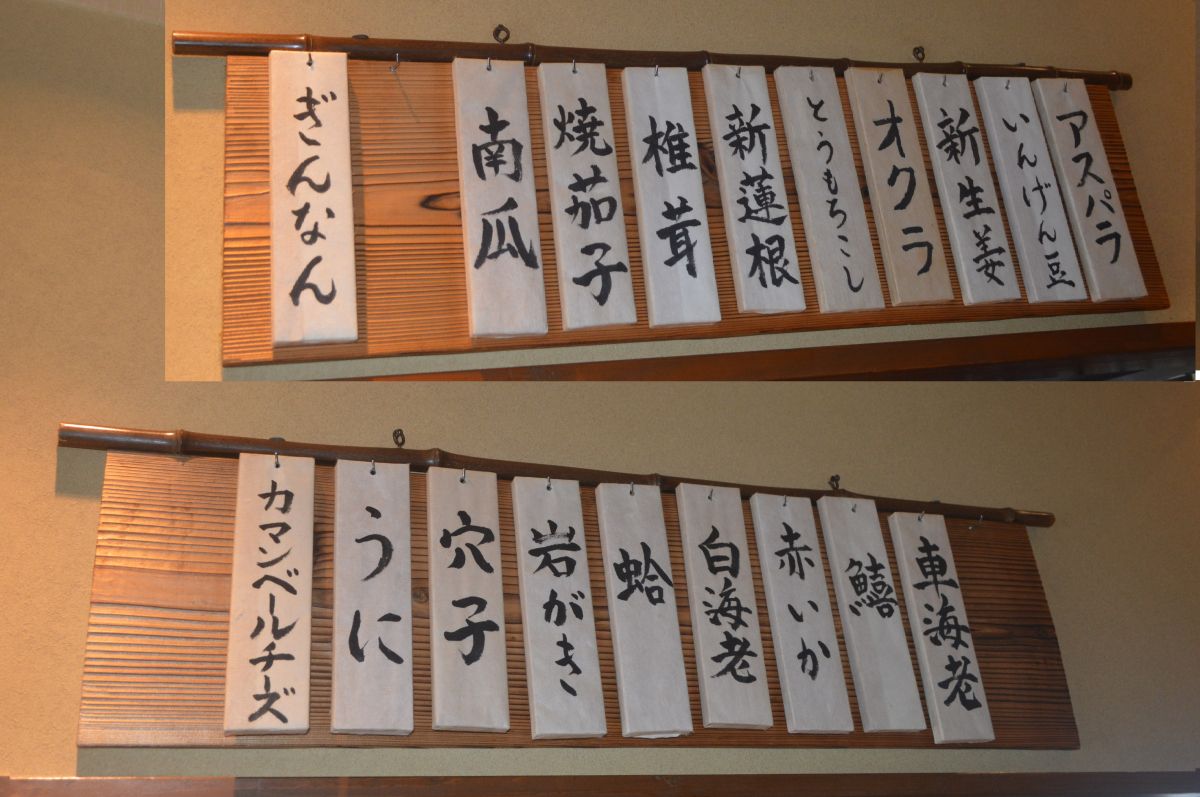 アスパラ
いんげん豆
新生姜
オクラ
とうもろこし
新蓮根
椎茸
焼茄子
南瓜
ぎんなん
車海老
鱚
赤いか
白海老
蛤
岩がき
穴子
うに
カマンベールチーズ